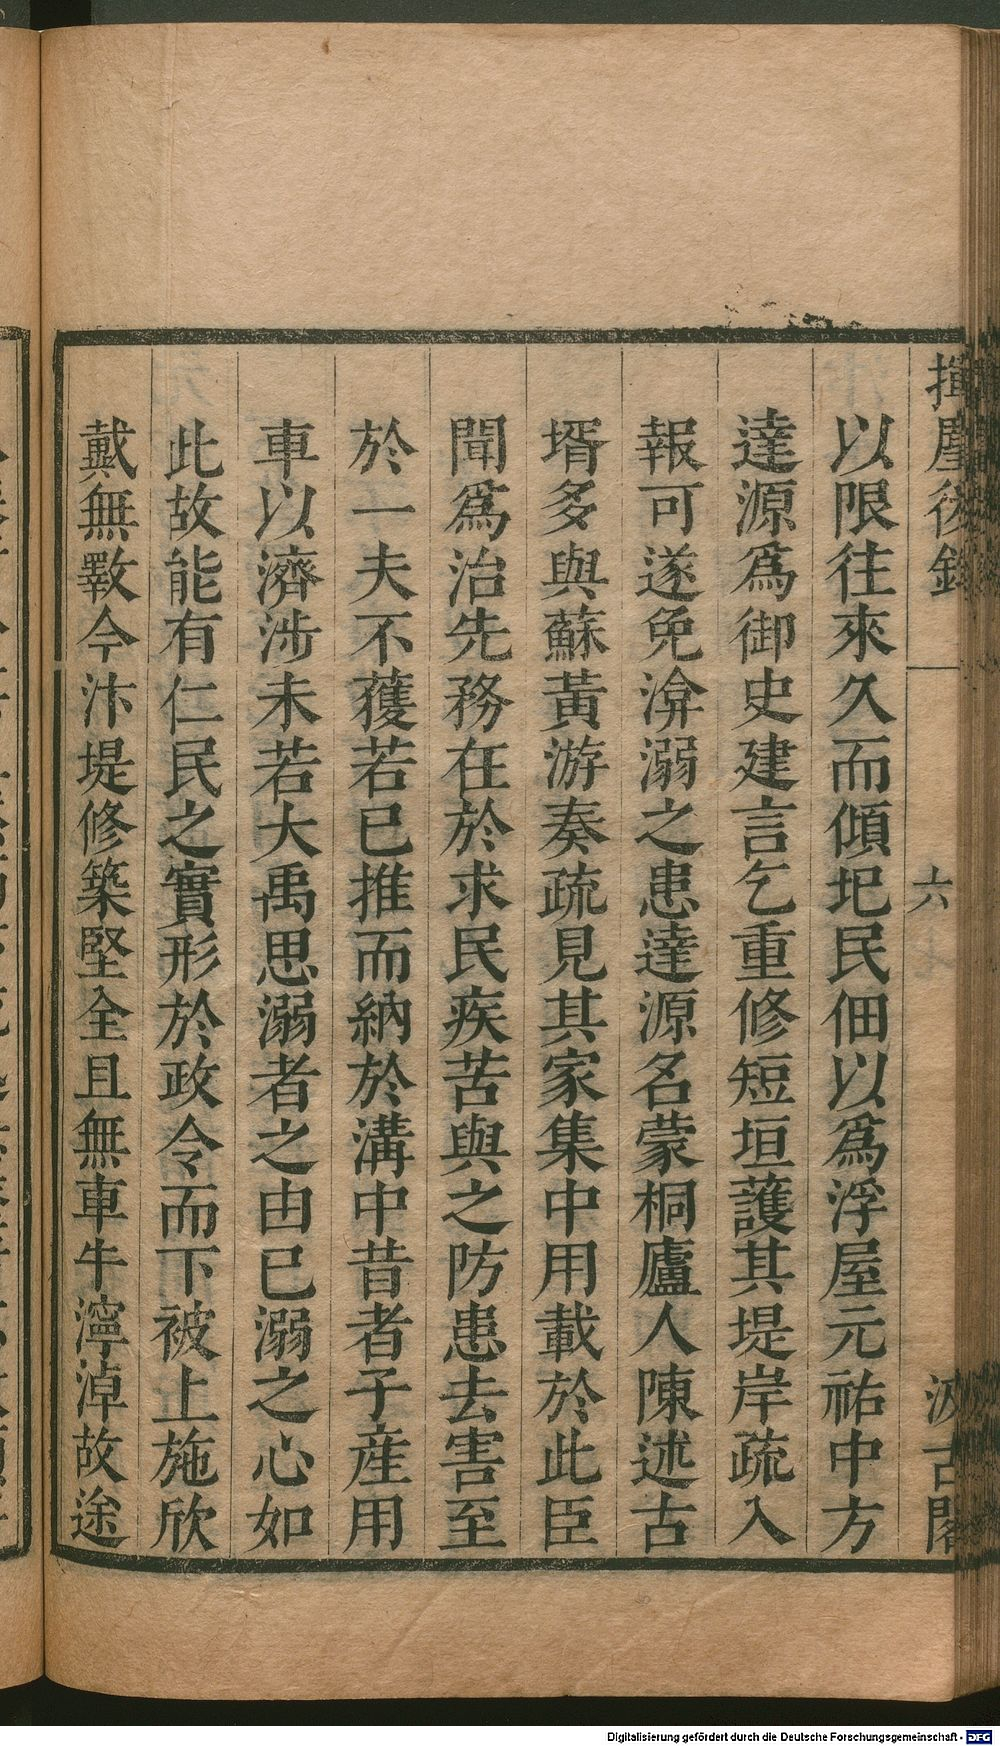 揮麈後錄
六
汲古閣
以限往來久而傾圯民佃以爲浮屋元祐中方
達源爲御史建言乞重修短垣護其堤岸疏入
報可遂免渰溺之患達源名蒙桐廬人陳述古
壻多與蘇黃游奏疏見其家集中用載於此臣
聞爲治先務在於求民疾苦與之防患去害至
於一夫不獲若已推而納於溝中昔者子産用
車以濟涉未若大禹思溺者之由已溺之心如
此故能有仁民之實形於政令而下被上施欣
戴無斁今汴堤修築堅全且無車牛濘淖故途
Digitalisierung gefördert durch die Deutsche Forschungsgemeinschaft - DFG